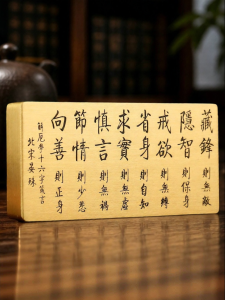 藏鋒則無敵
隱智則保身
戒欲則無縛
省身則自知
求實則無虛
慎言則無禍
節情則少怨
向善則正身
解厄學十六字箴言
北宋晏殊